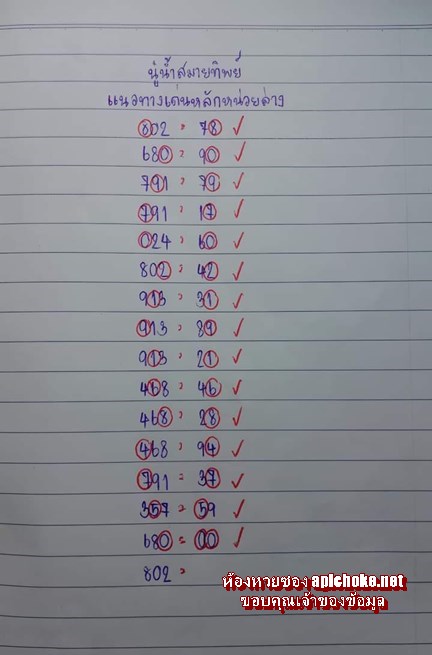 ปู่น้ำสมายทิพย์
แนวทางเด่นหลักหน่วยล่าง
802 = 78 ✓
680 = 90 ✓
791 = 79 ✓
791 = 17 ✓
024 = 60 ✓
802 = 42 ✓
913 = 31 ✓
913 = 89 ✓
913 = 21 ✓
468 = 46 ✓
468 = 28 ✓
468 = 94 ✓
791 = 37 ✓
357 = 59 ✓
680 = 00 ✓
802 =
ห้องหวยซอง apichoke.net
ขอบคุณเจ้าของข้อมูล